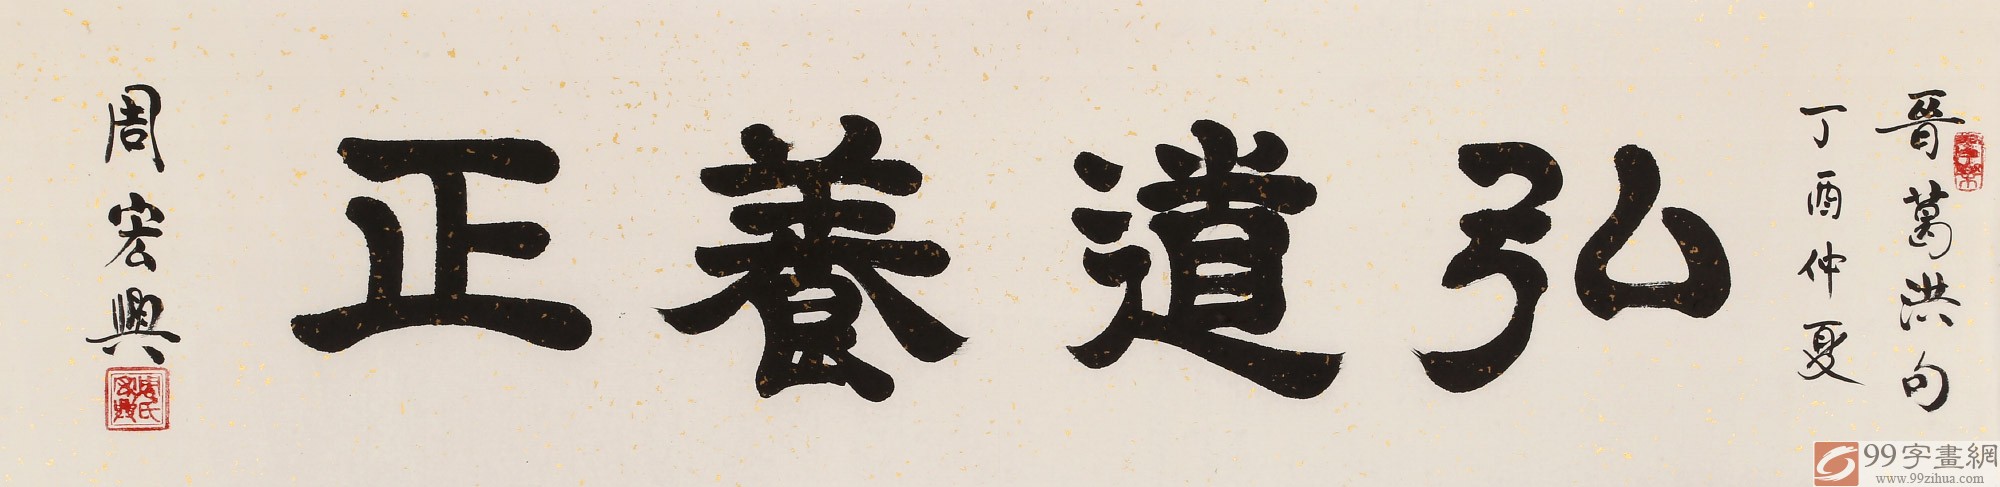 晉葛洪句
丁酉仲夏
弘道養正
周宏興
99字畫網
www.99zihua.com